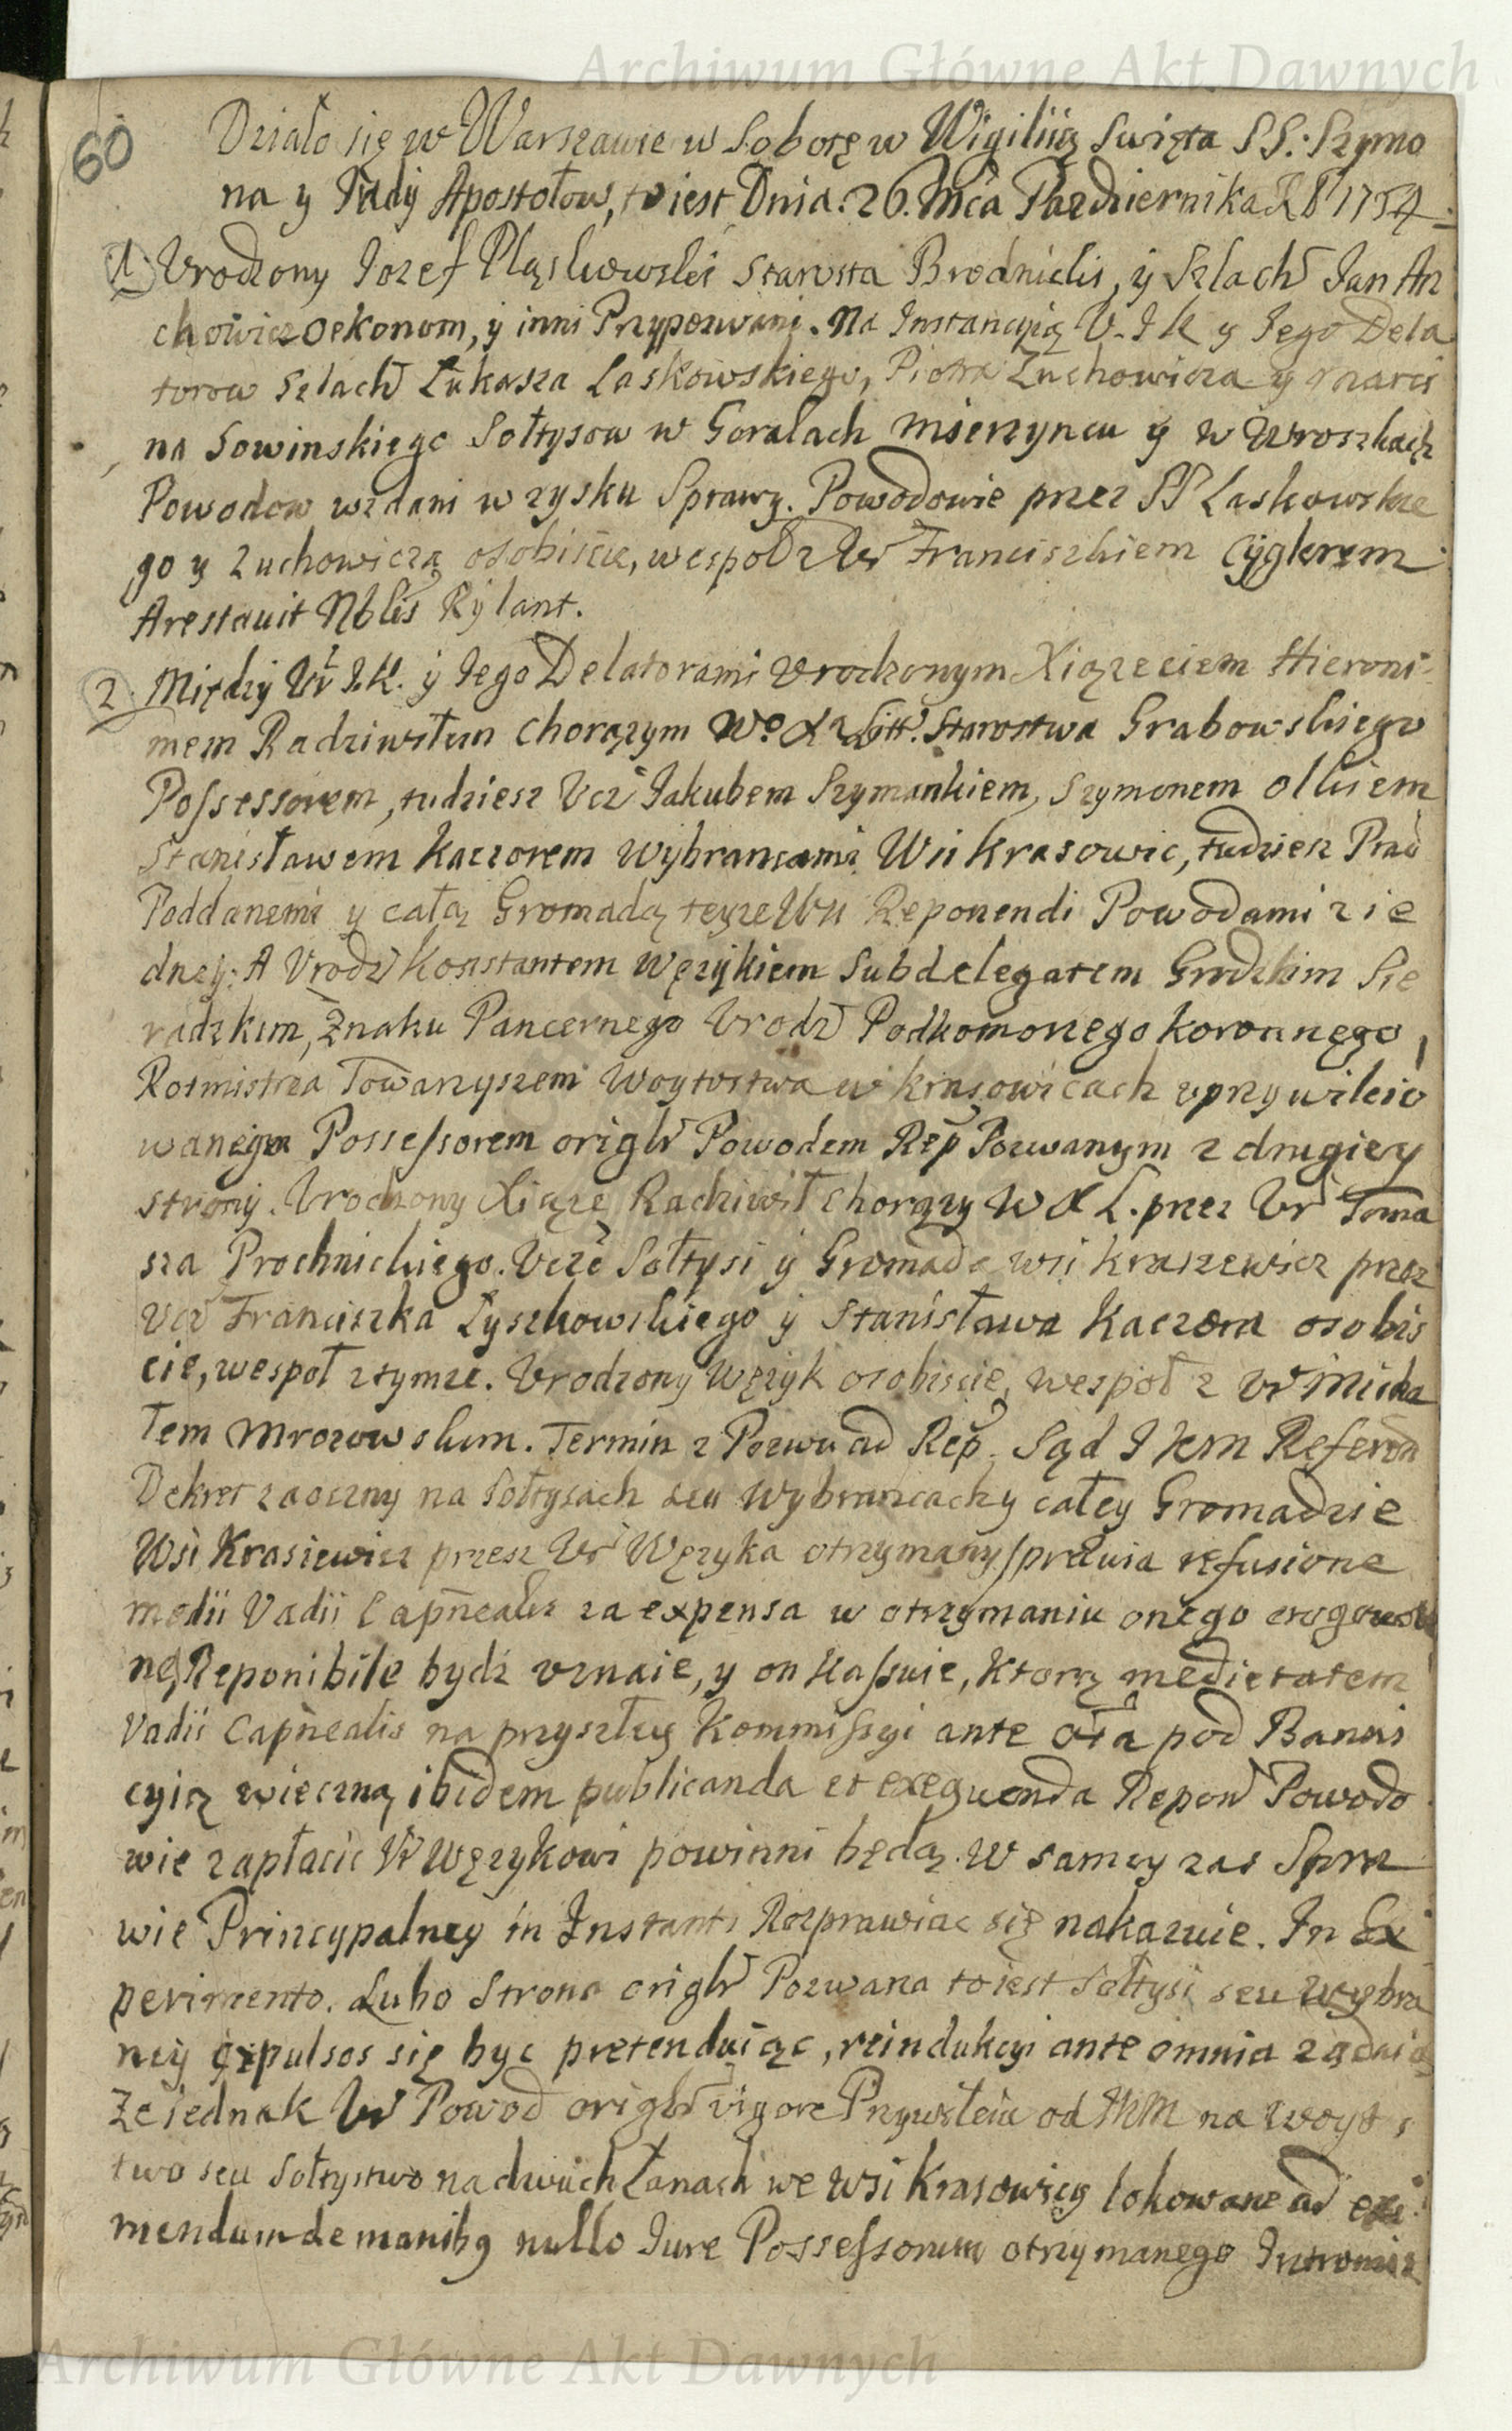 Archiwum Główne Akt Dawnych
60
Działo się w Warszawie w Sobotę w Wigiliią Swięta SS: Szymo
na y Judy Apostołow, to iest Dnia. 26. Mca Pazdziernika R P 1754.
1 Vrodzony Jozef Pląskowski Starosta Brodnicki, y Szlach Jan An
chowicz Oekonom, y inni Przypozwani. Na Instancyią V. I K y Jego Dela
torow Szlach Łukasza Laskowskiego, Piotra Zuchowicza y Marci
na Sowinskiego Sołtysow w Goralach Mierzyncu y w Wroszkach
Powodow wzdani w zysku Sprawy. Powodowie przez SS Laskowskie
go y Zuchowicza osobiscie, wespoł z Ur Franciszkiem Cyglerem
Arestauit Nblis Rylant.
2. Między Ur I. K. y Jego Delatorami Vrodzonym Xiązęciem Hieroni
mem Radziwiłłem Chorązym Wo X Litt. Starostwa Grabowskiego
Possessorem, tudziesz Ucz Jakubem Szymankiem, Szymonem Olkiem
Stanisławem Kaczorem Wybrancami Wsi Krasowic, tudziesz Prac
Poddanemi y całą Gromadą teyze Wsi Reponendi Powodami z ie
dney: A Vrodz Konstantem Węzykiem Subdelegatem Grodzkim Sie
radzkim, Znaku Pancernego Vrodz Podkomorzego Koronnego,
Rotmistrza Towarzyszem Woytostwa w Krasowicach uprzywileio
wanego Possessorem origlr Powodem Rep Pozwanym z drugiey
strony. Vrodzony Xiąze Radziwił Chorązy W X L. przez Ur Toma
sza Prochnickiego. Ucze Sołtysi y Gromada wsi Kraszewicz przez
Ucz Franciszka Łyszkowskiego y Stanisława Kaczora osobis
cie, wespoł z tymze. Vrodzony Węzyk osobiscie, wespoł z Ur Micha
łem Mrozowskim. Termin z Pozwu ad Rep. Sąd I Kem Referen
Dekret zaoczny na Sołtysach seu Wybrancach y całey Gromadzie
Wsi Krasiewicz przez Ur Węzyka otrzymany, praevia refusione
medii Vadii Capnealis za expensa w otrzymaniu onego erogowa
ne, Reponibile bydz uznaie, y on Kassuie, ktorą medietatem
Vadii Capnealis na przyszłey Kommissyi ante oia pod Banni
cyią wieczną ibidem publicanda et exequenda Repon Powodo
wie zapłacic Ur Węzykowi powinni będą. W samey zas Spra
wie Princypalney in Instanti Rozprawiac się nakazuie. In Ex
perimento. Lubo Strona origlr Pozwana to iest Sołtysi seu Wybra
ncy expulsos się byc pretenduiąc, reindukcyi ante omnia ządaią
Ze iednak Ur Powod origlr vigore Przywileiu od JKM na Woyto
two seu Sołtystwo na dwuch Łanach we Wsi Krasowicy lokowane ad exi
mendum de manibq nullo Jure Possessorum otrzymanego Intromis
Archiwum Główne Akt Dawnych